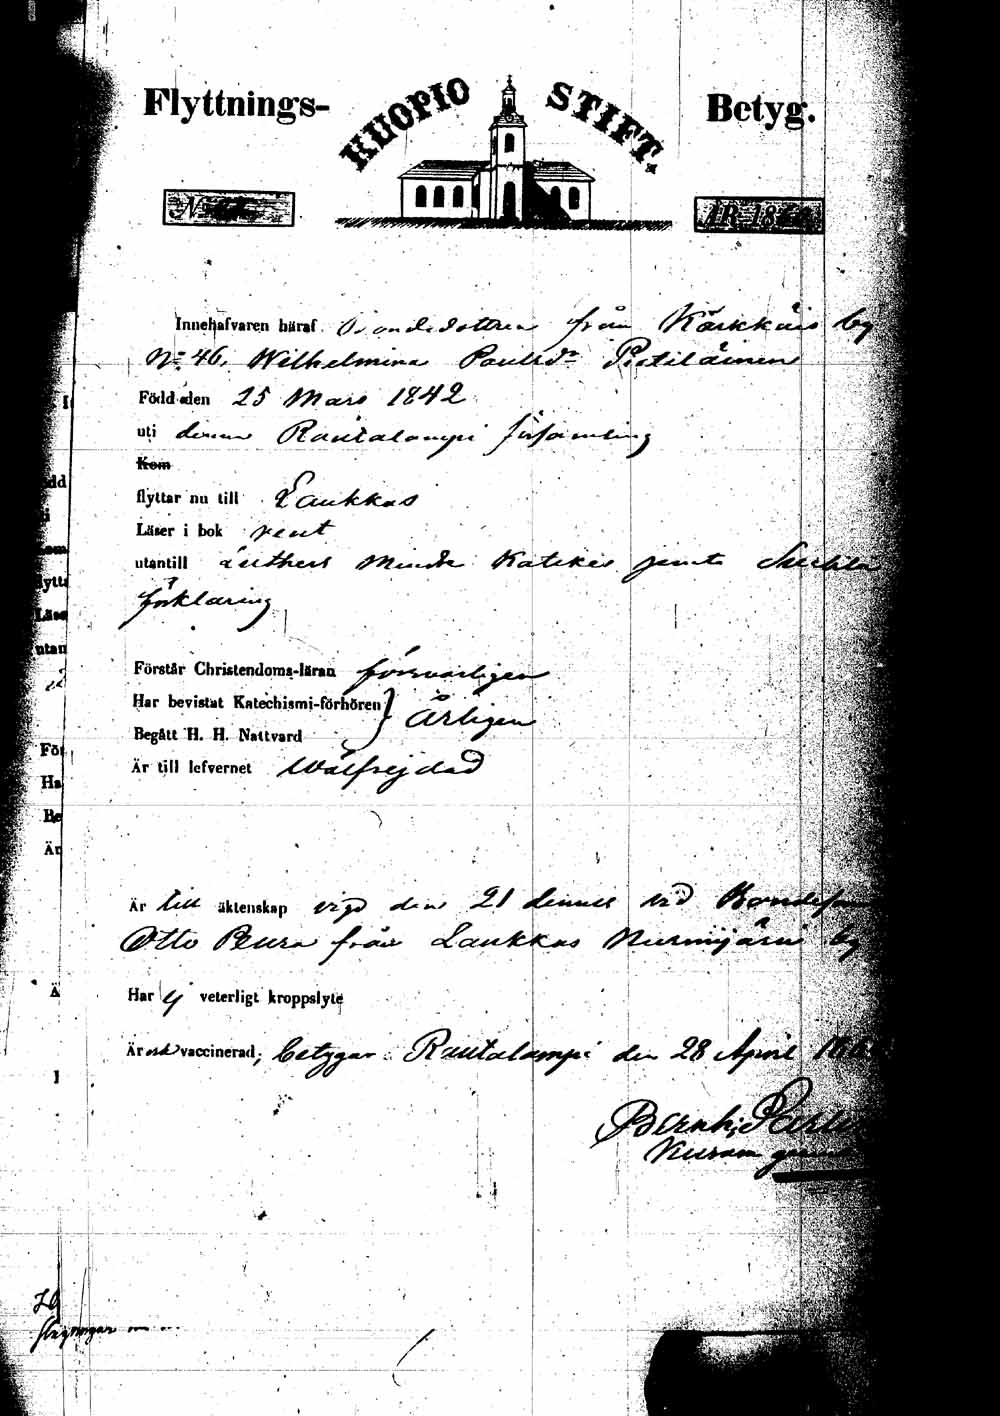 Flyttnings- KUOPIO STIFT. Betyg.
N
ÅR 186
Innehafvaren häraf Bondedottren från Kärkkäis by
No 46, Wilhelmina Paulsdr Pietiläinen
Född den 25 Mars 1842
uti denna Rautalampi församling
Kom
flyttar nu till Laukkas
Läser i bok rent
utantill Luthers Mindre Katekes jemte
förklaring
Förstår Christendoms-läran försvarligen
Har bevistat Katechismi-förhören } Årligen
Begått H. H. Nattvard
Är till lefvernet Wälfrejdad
Är till äktenskap vigd den 21 dennes vid
Otto Peura från Laukkas Nurmijärvi by
Har ej veterligt kroppslyte
Är och vaccinerad; betygar: Rautalampi den 28 April
Bernh;